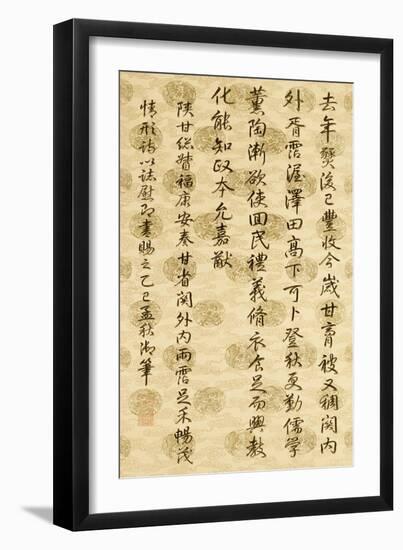 去年燹後已豐收今歲甘膏被又稠関内
外胥霑渥澤田高下可卜登秋更勤儒学
薰陶漸欲使囬民禮義脩衣食足而興教
化能知政本允嘉猷
陝甘緫督福康安奏甘省関外内雨霑足禾暢茂
情形詩以誌慰即書賜之乙巳孟秋御筆